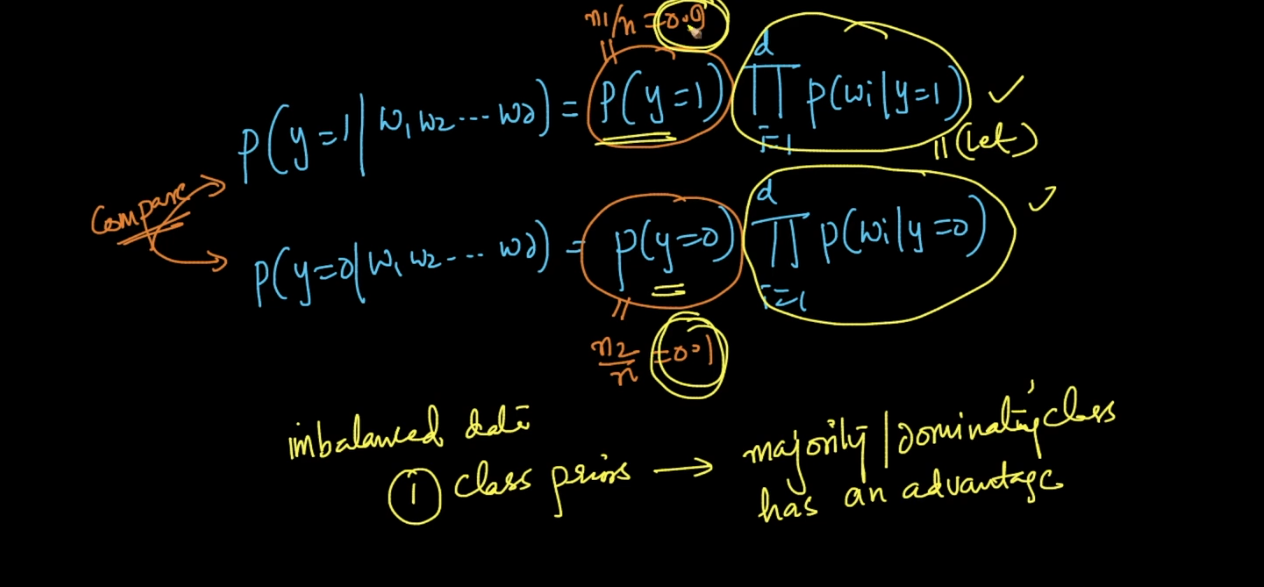 n1/n = 0.9
P(y=1 | w1, w2 ... wd) = P(y=1) ∏ᵈᵢ₌₁ P(wi|y=1) ✓
|| (let)
Compare
P(y=0 | w1, w2 ... wd) = P(y=0) ∏ᵈᵢ₌₁ P(wi|y=0) ✓
n2/n = 0.1
imbalanced data
① class priors → majority/dominating class
has an advantage